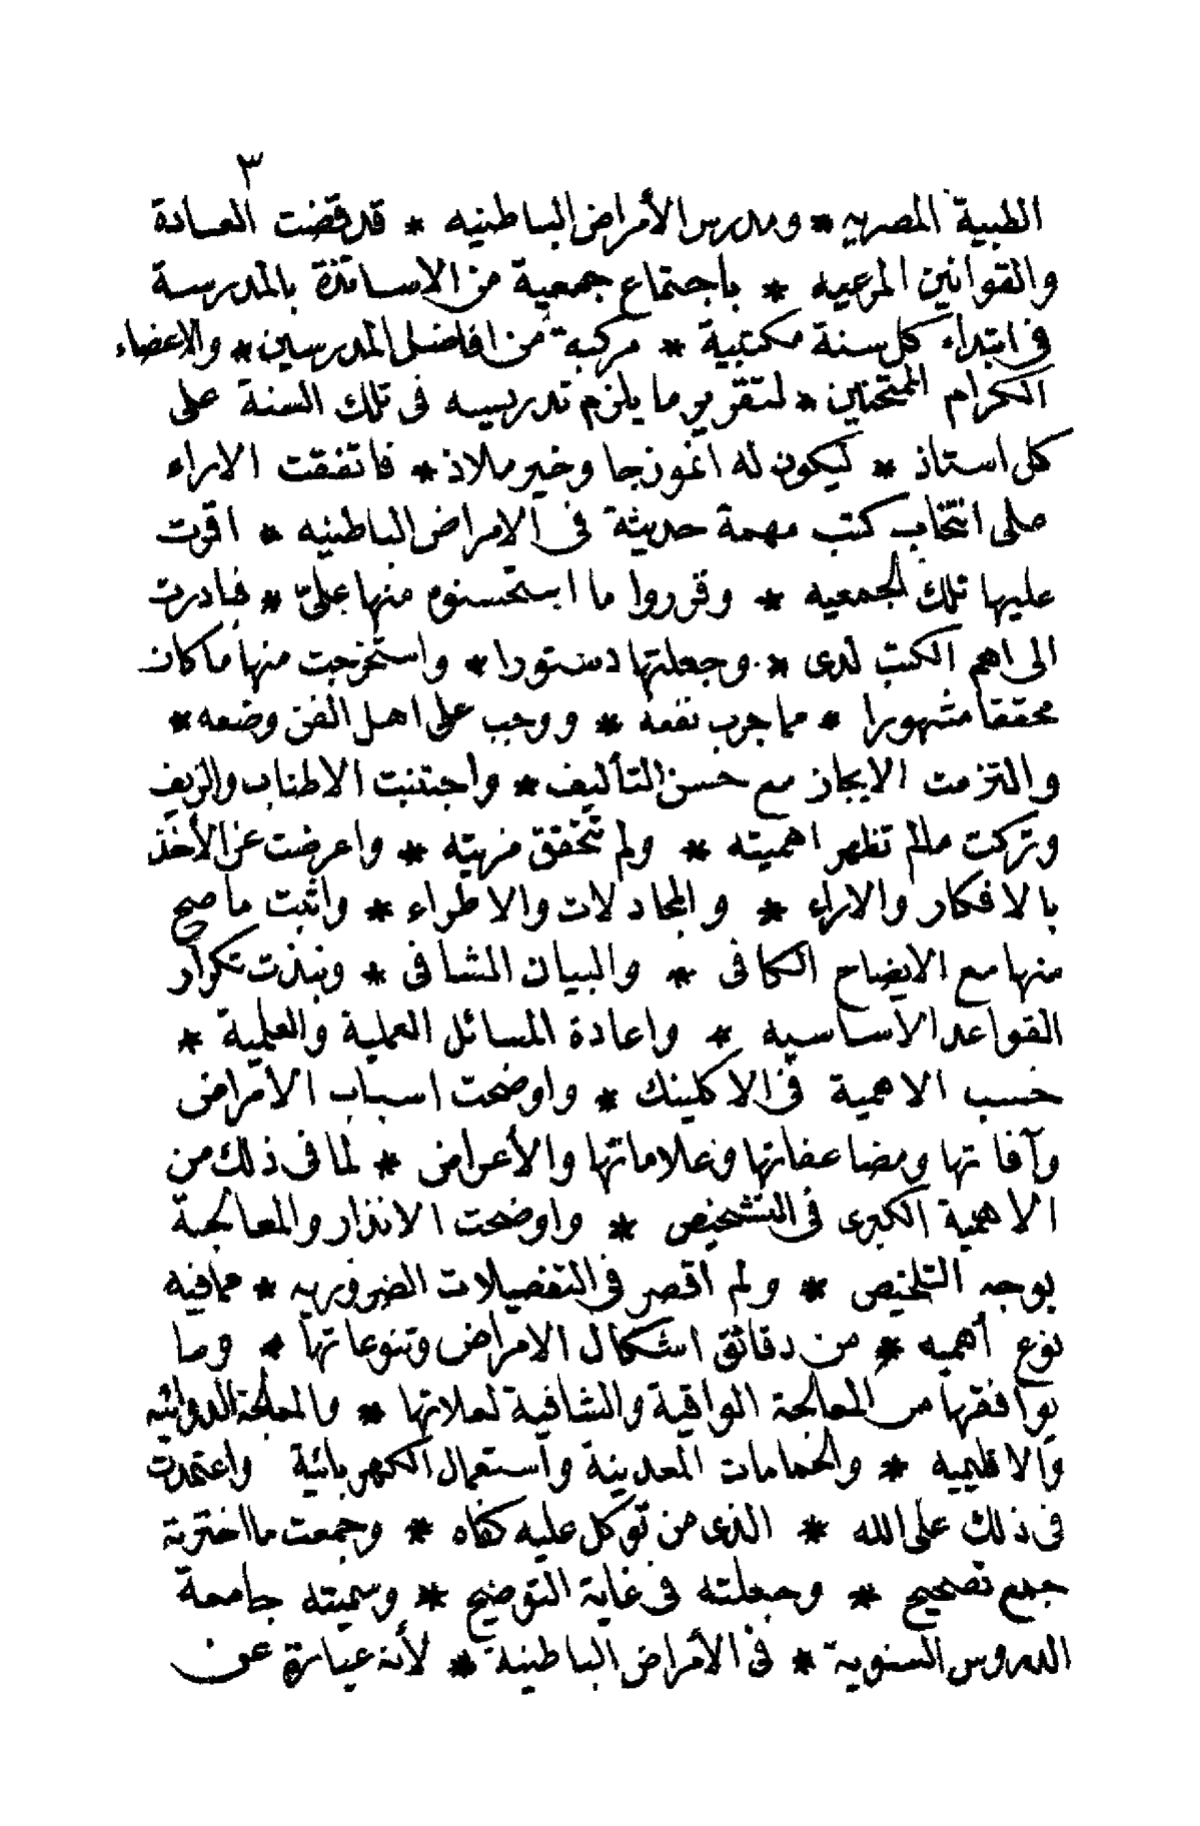 ٣
الطبية المصريه * ومدرس الأمراض الباطنيه * قد قضت العادة
والقوانين المرعيه * باجتماع جمعية من الاساتذة بالمدرسة
في ابتداء كل سنة مكتبية * مركبة من افاضل المدرسين * والاعضاء
الكرام الممتحنين * لتقرير ما يلزم تدريسه فى تلك السنة على
كل استاذ * ليكون له انموزجا وخير ملاذ * فاتفقت الاراء
على انتخاب كتب مهمة حديثة فى الامراض الباطنيه * اقرت
عليها تلك الجمعيه * وقرروا ما استحسنوه منها علىّ * فبادرت
الى اهم الكتب لدى * وجعلتها دستورا * واستخرجت منها ما كان
محققا مشهورا * مما جرب نفعه * ووجب على اهل الفن وضعه *
والتزمت الايجاز مع حسن التأليف * واجتنبت الاطناب والزيف
وتركت مالم تظهر اهميته * ولم تتحقق مزيته * واعرضت عن الأخذ
بالافكار والاراء * والمجادلات والاطراء * واثبت ما صح
منها مع الايضاح الكافى * والبيان الشافى * ونبذت تكرار
القواعد الاساسيه * واعادة المسائل العملية والعلمية *
حسب الاهمية فى الاكلينك * واوضحت اسباب الامراض
وآفاتها ومضاعفاتها وعلاماتها والأعراض * لما فى ذلك من
الاهمية الكبرى فى التشخيص * واوضحت الانذار والمعالجة
بوجه التلخيص * ولم اقصر فى التفصيلات الضروريه * مما فيه
نوع أهميه * من دقائق اشكال الامراض وتنوعاتها * وما
يوافقها من المعالجة الواقية والشافية لعلاتها * والمعالجة الدوائيه
والاقليميه * والحمامات المعدينة واستعمال الكهربائية واعتمدت
فى ذلك على الله * الذى من توكل عليه كفاه * وجمعت ما اخترته
جمع تصحيح * وجعلته فى غاية التوضيح * وسميته جامعة
الدروس السنوية * فى الأمراض الباطنية * لأنه عبارة عن